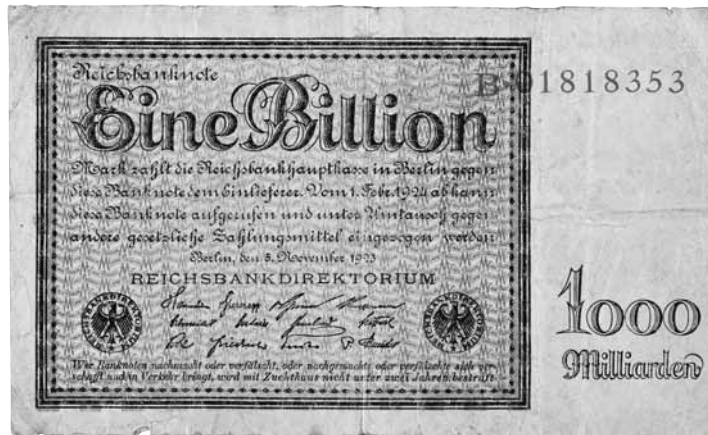 Reichsbanknote
B·01818353
Eine Billion
Mark zahlt die Reichsbankhauptkasse in Berlin gegen
diese Banknote dem Einlieferer. Vom 1. Febr. 1924 ab kann
diese Banknote aufgerufen und unter Umtausch gegen
andere gesetzliche Zahlungsmittel eingezogen werden
Berlin, den 5. November 1923
REICHSBANKDIREKTORIUM
REICHSBANKDIREKTORIUM
REICHSBANKDIREKTORIUM
Wer Banknoten nachmacht oder verfälscht, oder nachgemachte oder verfälschte sich ver-
schafft und in Verkehr bringt, wird mit Zuchthaus nicht unter zwei Jahren bestraft
1000
Milliarden